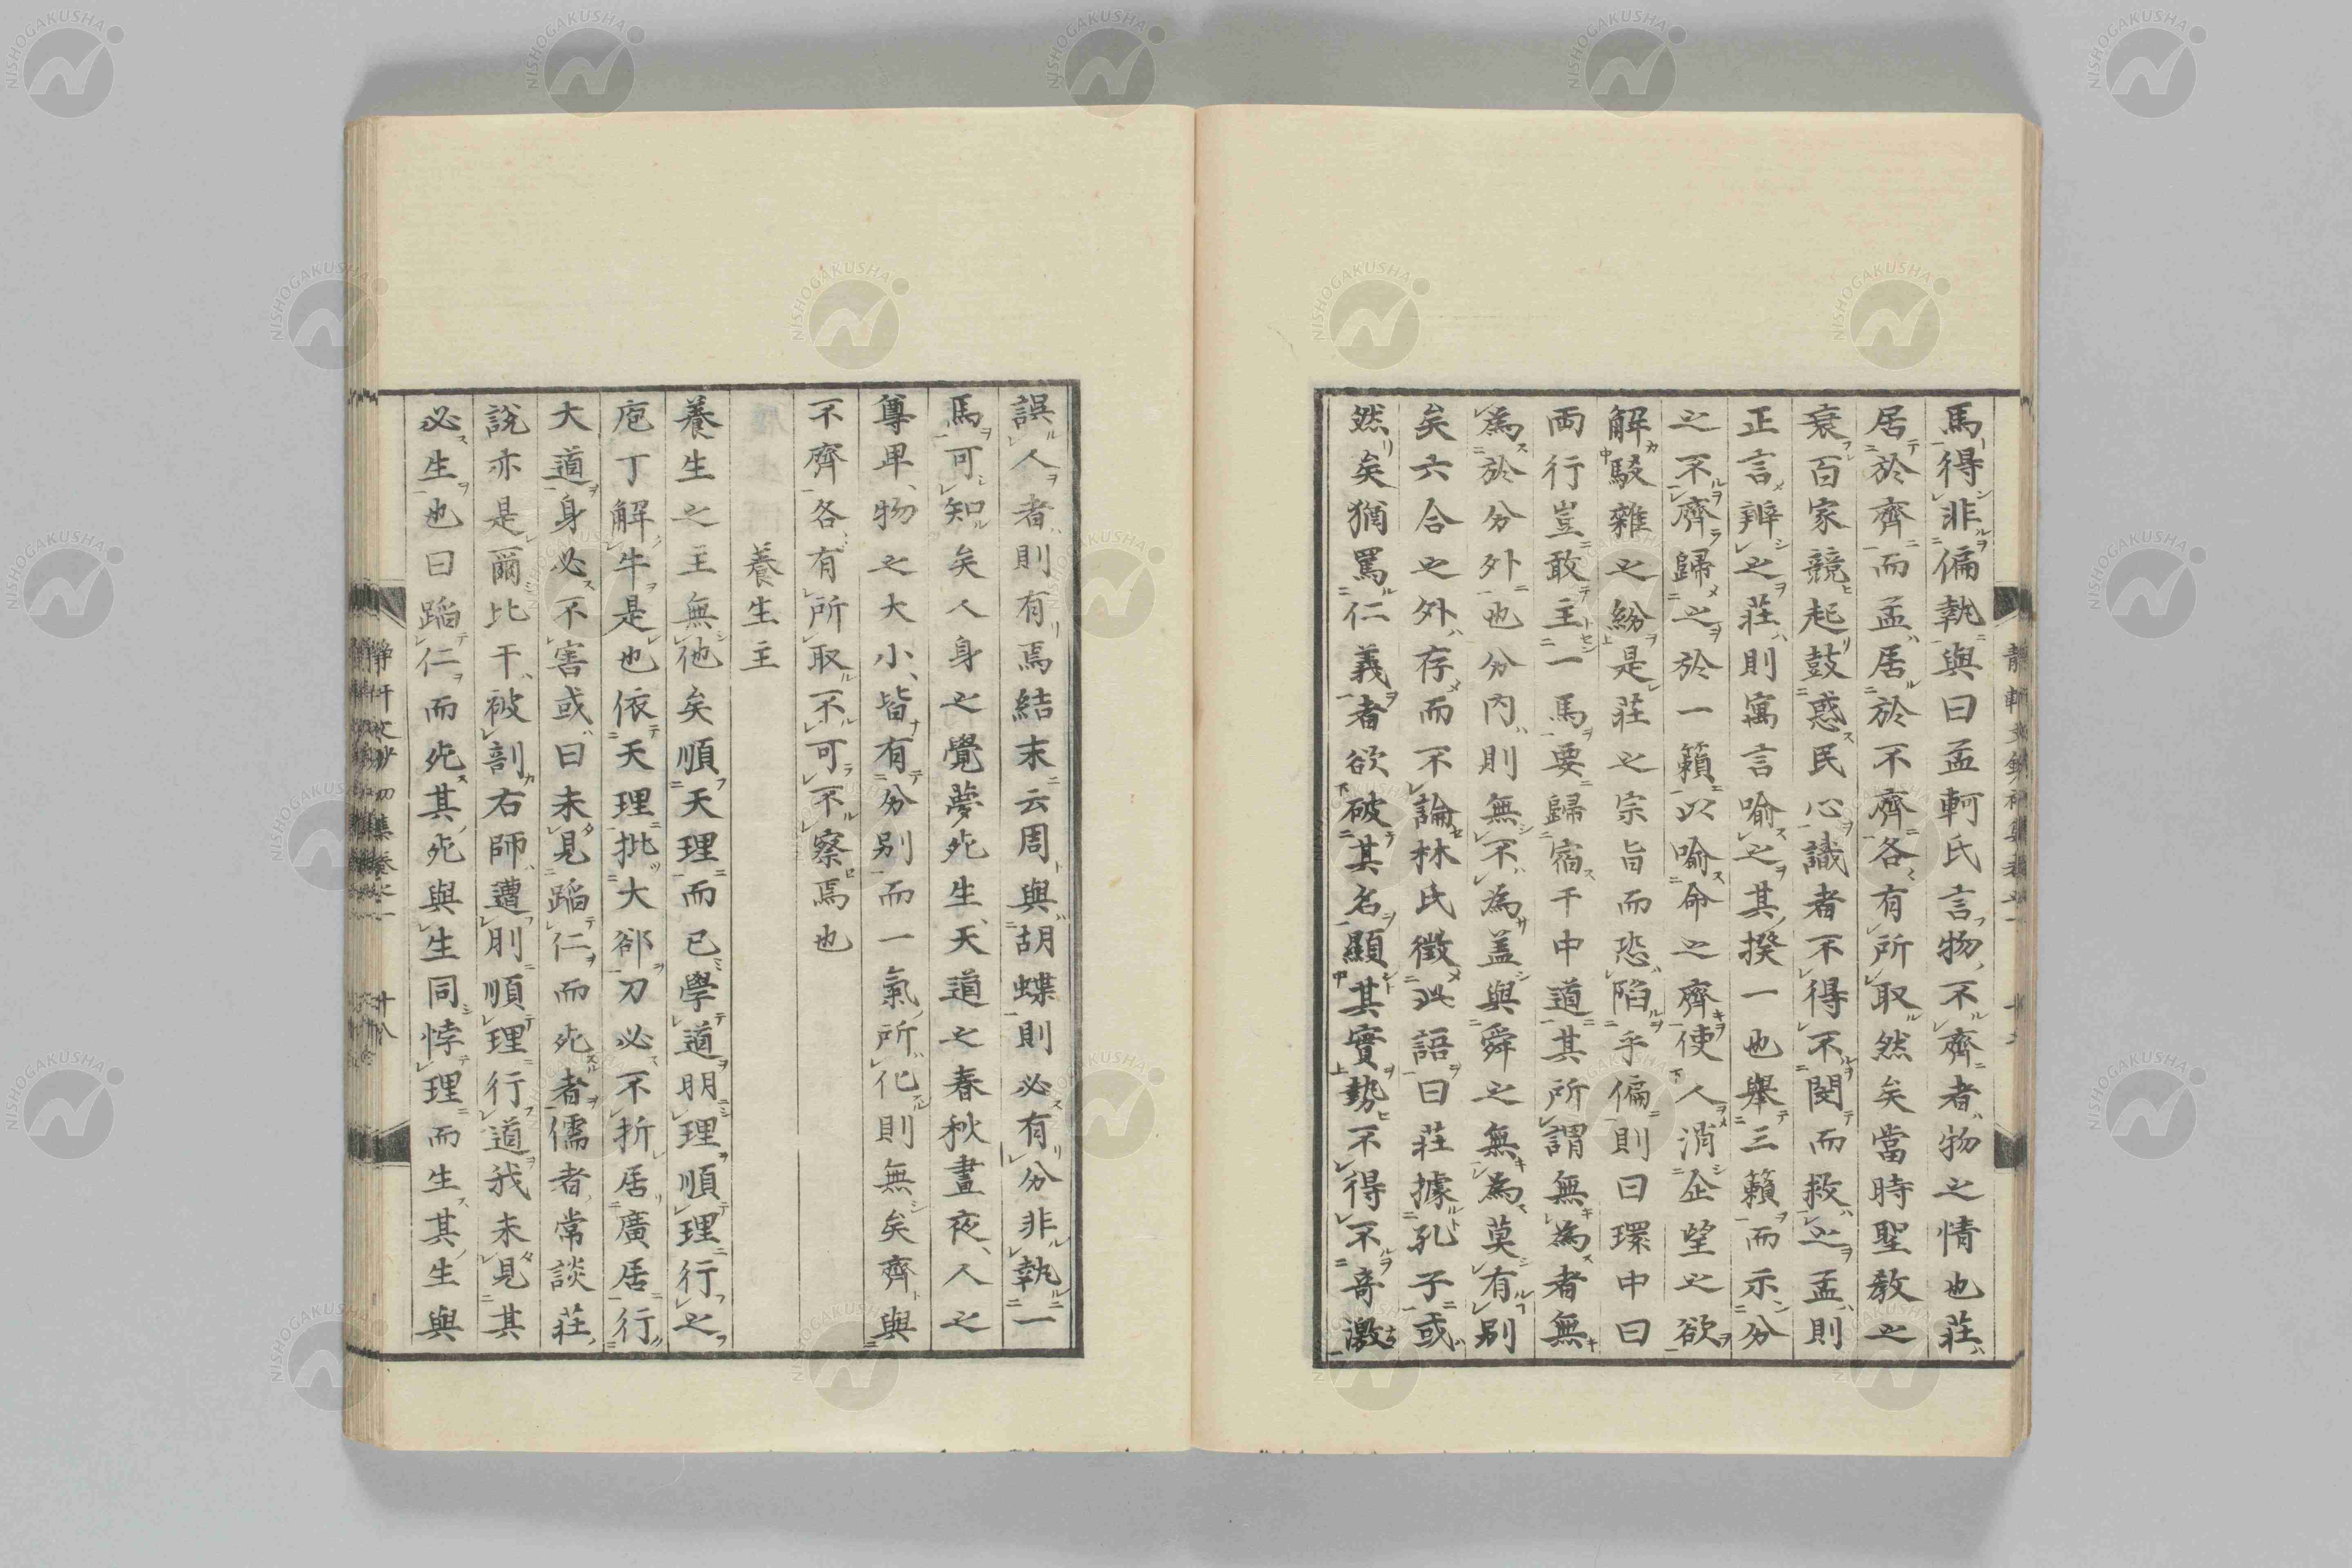 馬得非偏執與曰孟軻氏言物不齊者物之情也莊
居於齊而孟居於不齊各有所取然矣當時聖教之
衰百家競起鼓惑民心識者不得不閔而救之孟則
正言辨之莊則寓言喩之其揆一也舉三籟而示分
之不齊歸之於一籟以喩命之齊使人消企望之欲
解駁雜之紛是莊之宗旨而恐陷乎偏則曰環中曰
両行豈敢主一馬要歸宿于中道其所謂無為者無
為於分外也分内則無不為蓋與舜之無為莫有別
矣六合之外存而不論林氏徵此語曰莊據孔子或
然矣猶罵仁義者欲破其名顯其實勢不得不奇激
誤人者則有焉結末云周與胡蝶則必有分非執一
馬可知矣人身之覺夢死生天道之春秋晝夜人之
尊卑物之大小皆有分別而一氣所化則無矣齊與
不齊各有所取不可不察焉也
養生主
養生之主無他矣順天理而已學道明理順理行之
庖丁解牛是也依天理批大郤刀必不折居廣居行
大道身必不害或曰未見蹈仁而死者儒者常談莊
說亦是爾比干被剖右師遭刖順理行道我未見其
必生也曰蹈仁而死其死與生同悖理而生其生與
靜軒文鈔初集卷之一
廿八
NISHOGAKUSHA